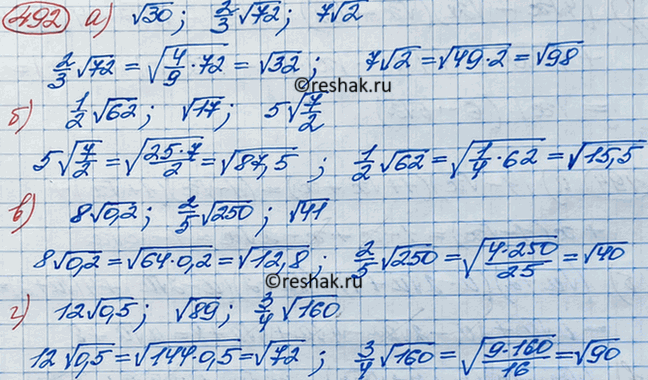 492 а) √30; 2/3 √72; 7√2
2/3 √72 = √(4/9 · 72) = √32; 7√2 = √(49·2) = √98
©reshak.ru
б) 1/2 √62; √17; 5√(7/2)
5√(7/2) = √(25·7/2) = √87,5; 1/2 √62 = √(1/4 · 62) = √15,5
в) 8√0,2; 2/5 √250; √41
8√0,2 = √(64·0,2) = √12,8; 2/5 √250 = √(4·250/25) = √40
©reshak.ru
г) 12√0,5; √89; 3/4 √160
12√0,5 = √(144·0,5) = √72; 3/4 √160 = √(9·160/16) = √90